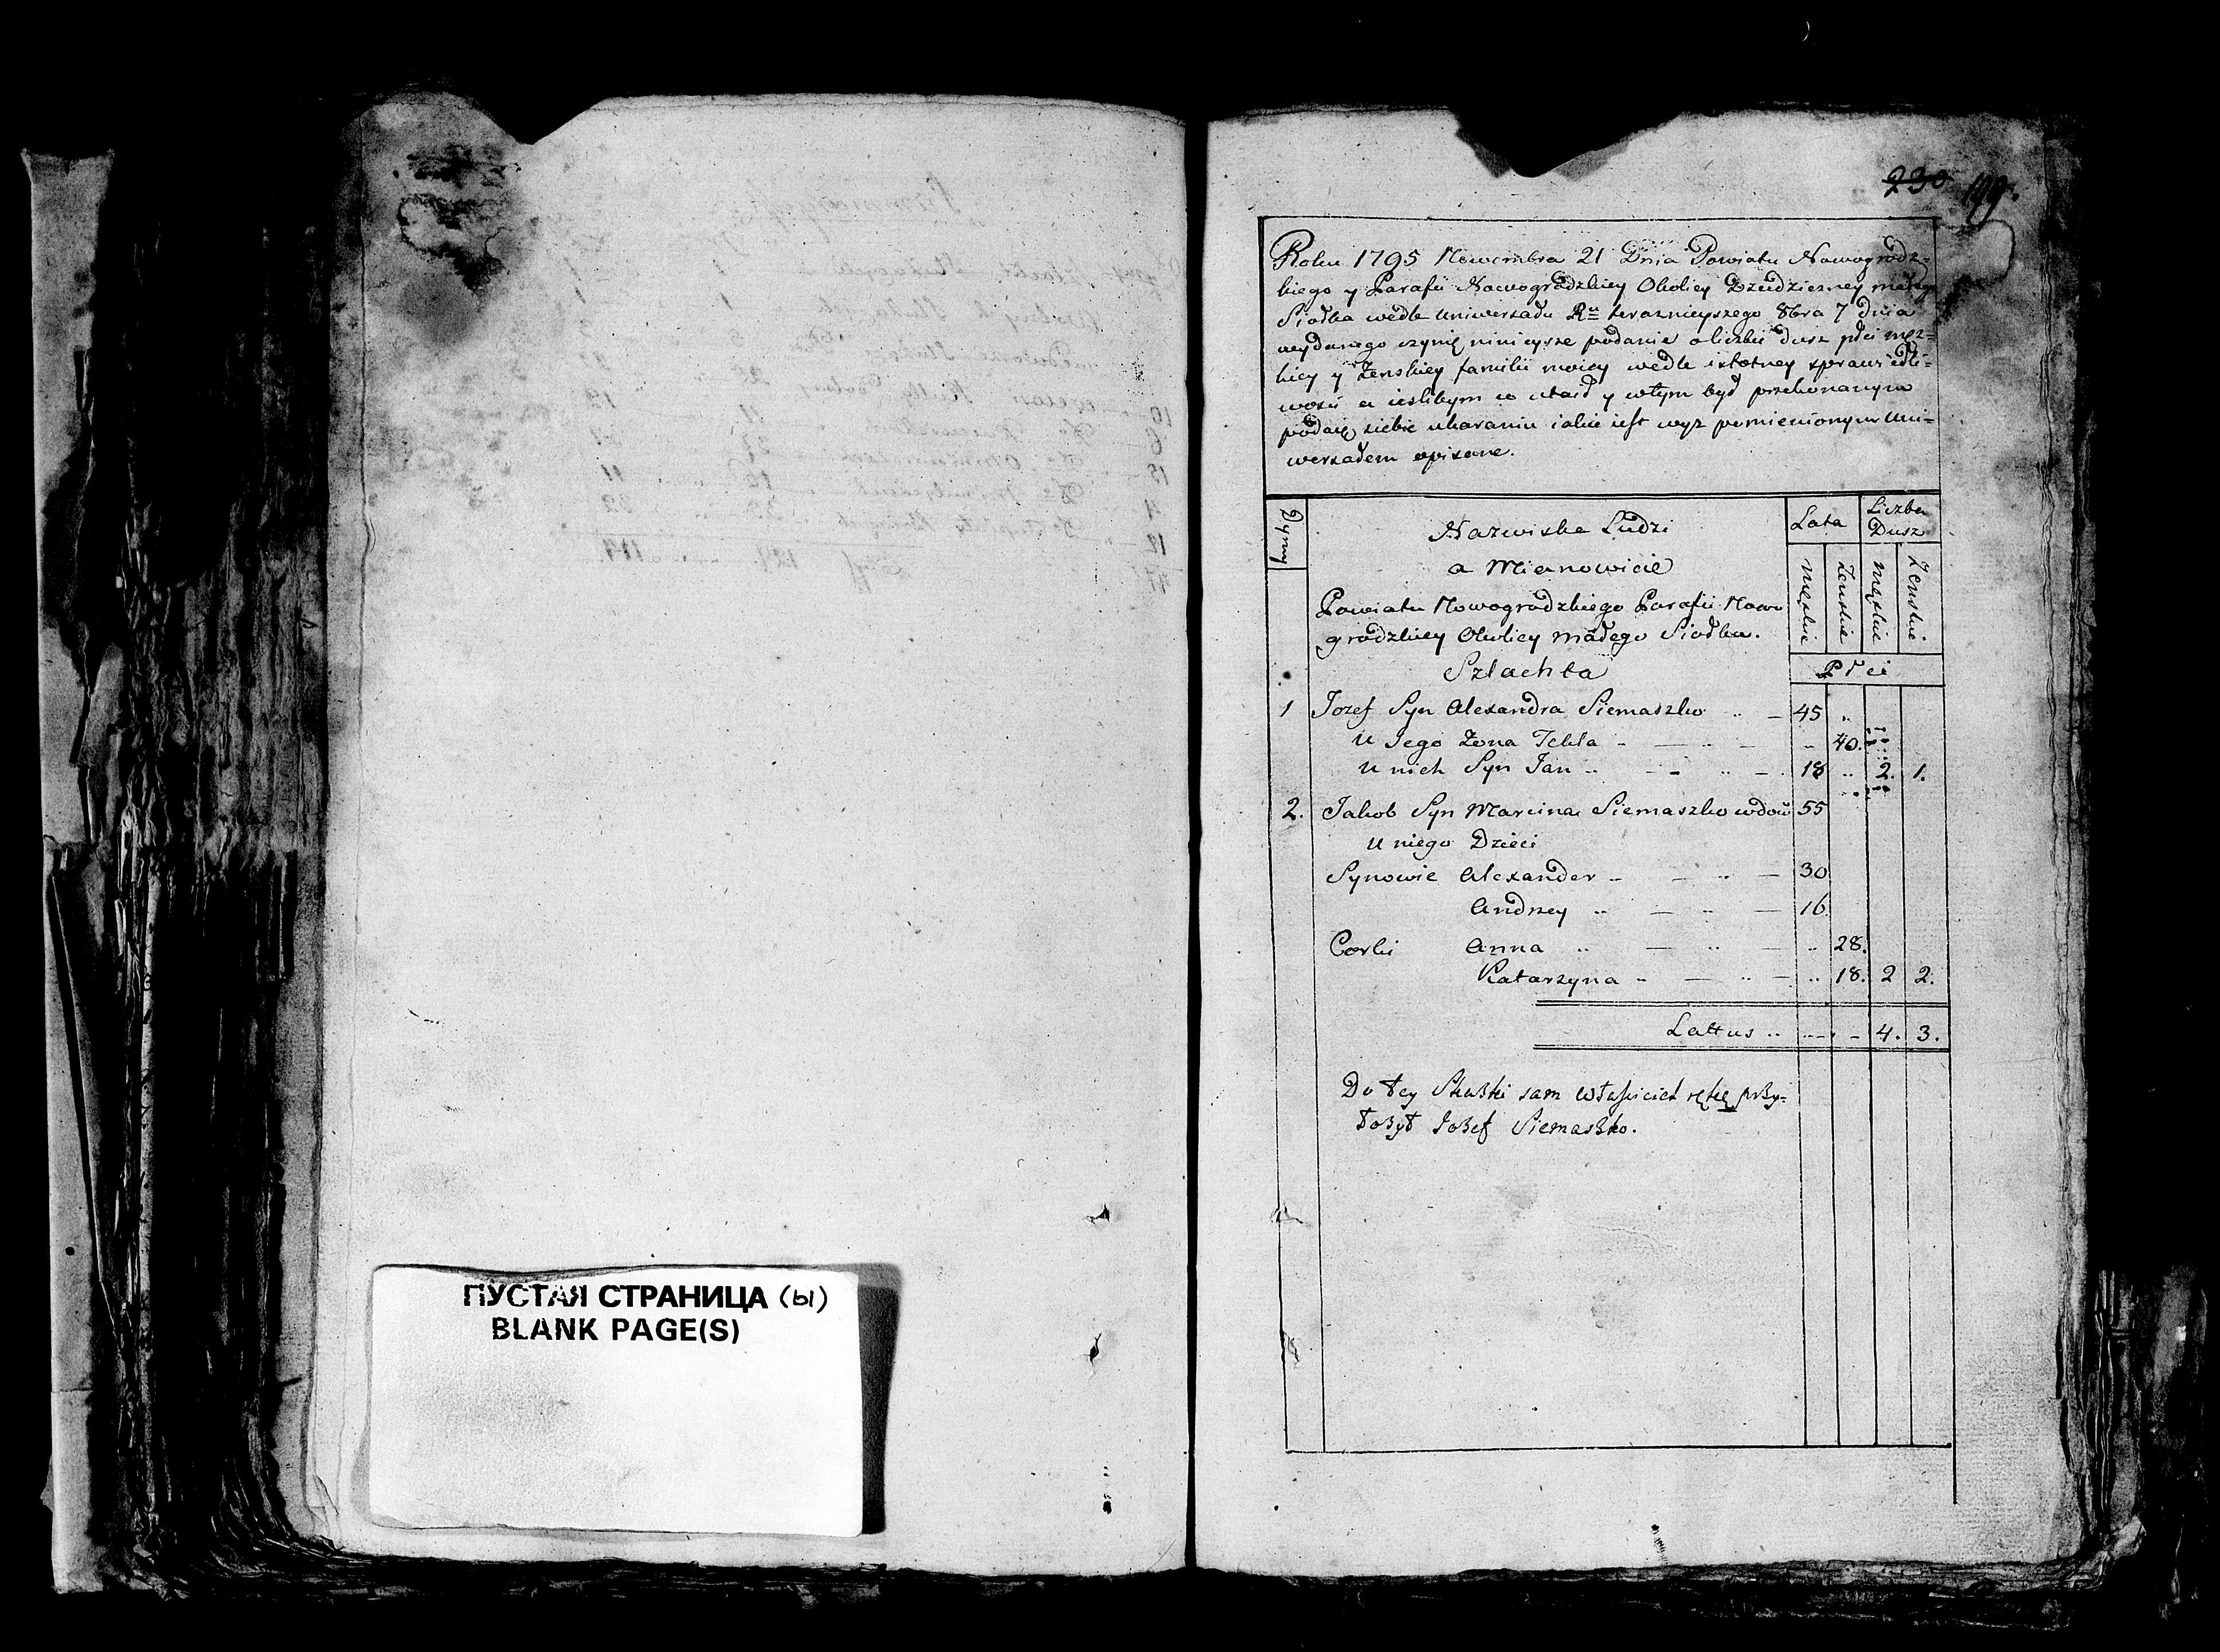 230 199.
Roku 1795 Nowembra 21 Dnia Powiatu Nowogrodz=
kiego y Parafii Nowogrodzkiey Okolicy Dziedziczney małego
Siodka wedle Uniwersadu Ru terazniejszego 8bra 7 dnia
wydanego czynię ninieysze podanie o liczbie dusz płci męz=
kiey y Zenskiey familii moiey wedle istotney sprawiedli=
wosci a ieslibym co utaid y wtym byd przekonanym
podaię siebie ukaraniu iakie iest wyz pomienionym Uni=
wersadem opisane.
Dymy
Nazwiske Ludzi
a Mianowicie
Lata
Liczba
Dusz
męzkie
Zenskie
męzkie
Zenskie
Powiatu Nowogrodzkiego Parafii Nowo
grodzkiey Okolicy małego Siodka.
Szlachta
Płci
1 Jozef Syn Alexandra Siemaszko .. – 45 ..
U Jego Zona Tekla – — .. – .. 40.
U nich Syn Jan .. – – .. – 18 .. 2. 1.
2. Jakob Syn Marcina Siemaszko wdow 55
U niego Dzieci
Synowie Alexander – – .. — 30
Andrzey .. — .. — 16
Corki Anna .. — .. — .. 28.
Katarzyna .. — .. — .. 18. 2 2.
Lattus .. 4. 3.
Do tey Skaski sam własciciel rękę przy=
łozył Jozef Siemaszko.
ПУСТАЯ СТРАНИЦА (ы)
BLANK PAGE(S)